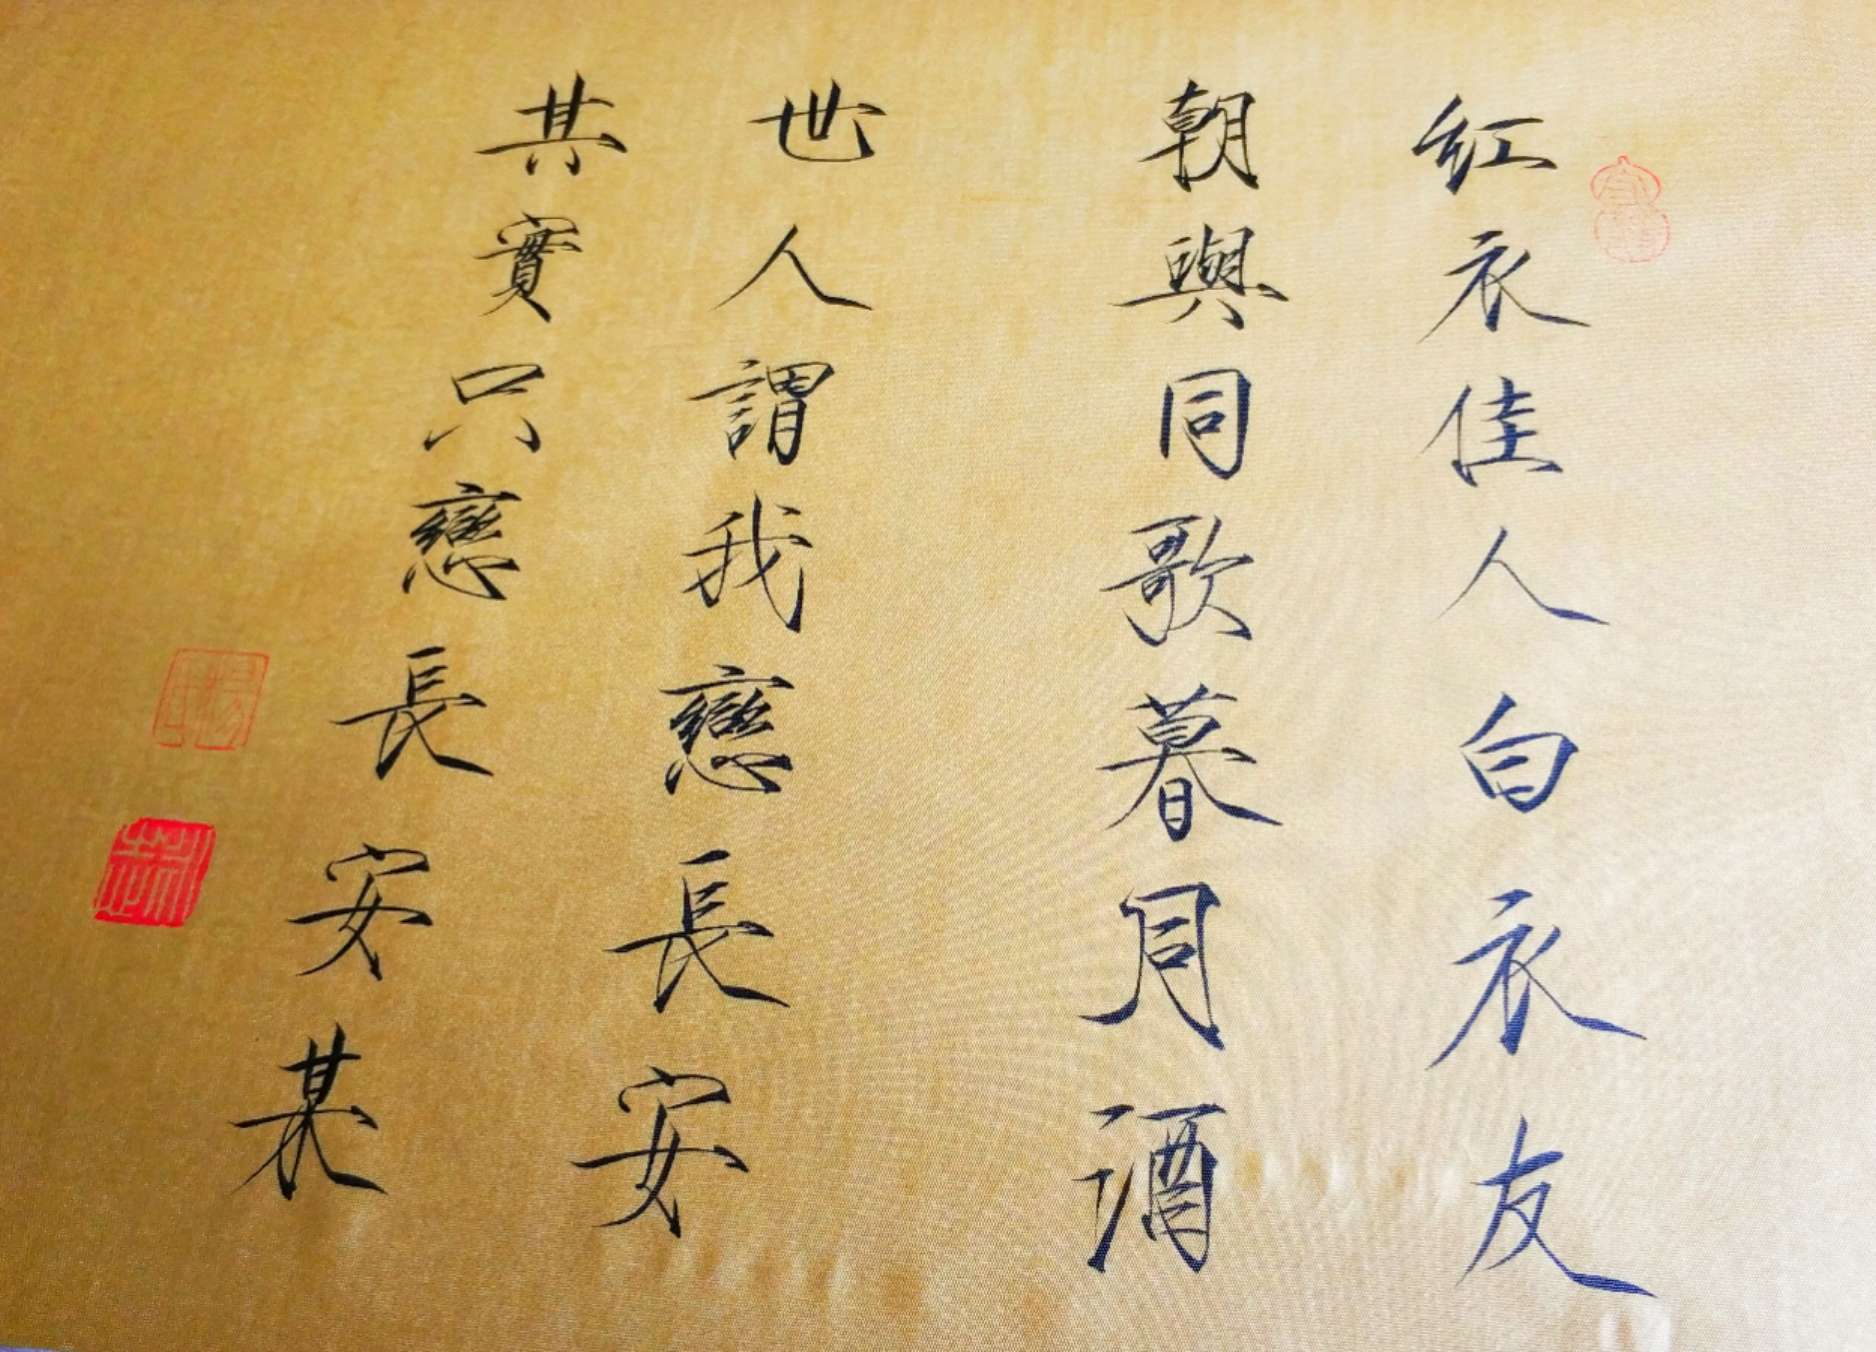 红衣佳人白衣友
朝與同歌暮同酒
世人謂我戀長安
其實只戀長安某